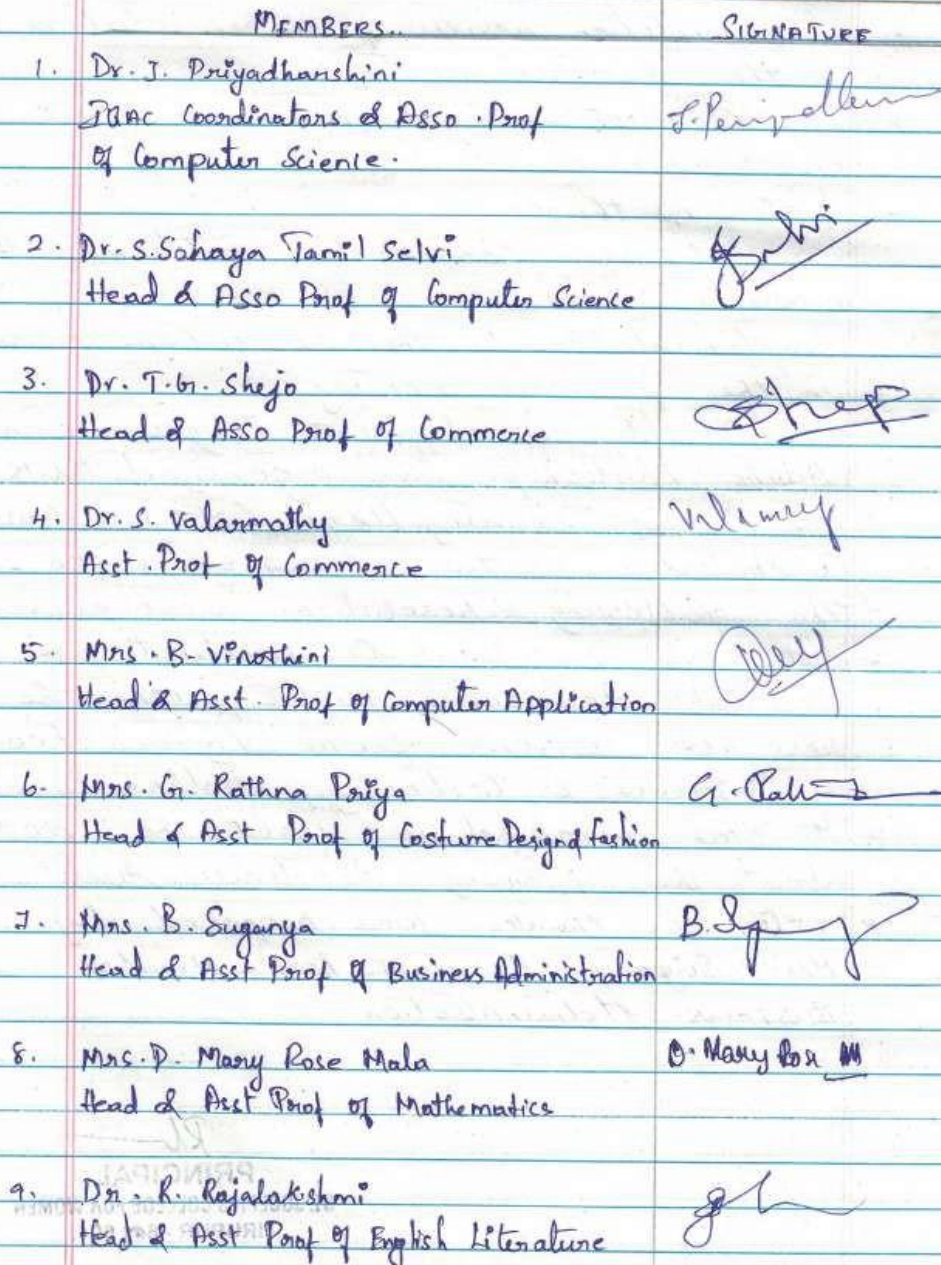 MEMBERS..
SIGNATURE
1. Dr. J. Priyadharshini
IQAC Coordinators & Asso. Prof
of Computer Science.
2. Dr. S. Sahaya Tamil Selvi
Head & Asso Prof of Computer Science
3. Dr. T.G. Shejo
Head & Asso Prof of Commerce
4. Dr. S. Valarmathy
Asst. Prof of Commerce
5. Mrs. B. Vinothini
Head & Asst. Prof of Computer Application
6. Mrs. G. Rathna Priya
G.
Head & Asst Prof of Costume Design & fashion
7. Mrs. B. Suganya
B.
Head & Asst Prof of Business Administration
8. Mrs. D. Mary Rose Mala
D. Mary Rose M
Head & Asst Prof of Mathematics
9. Dr. R. Rajalakshmi
Head & Asst Prof of English Literature
PRINCIPAL